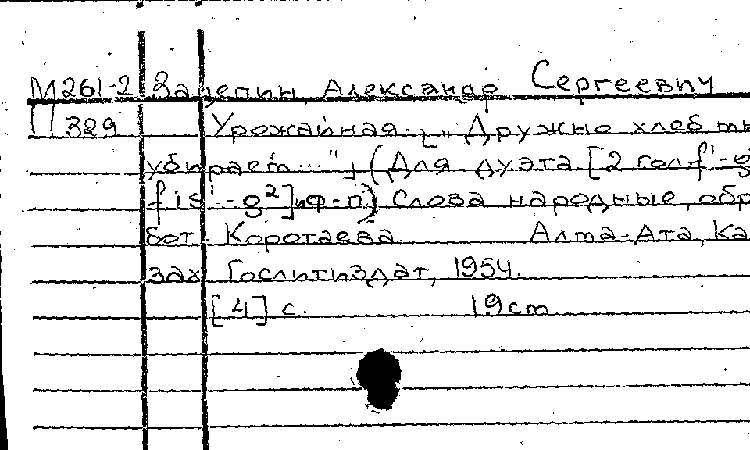 М261-2 Зацепин, Александр Сергеевич
П 329 Урожайная. [„Дружно хлеб ты
убирает..."] (Для дуэта [2 гол. f'-g
fis'-g²] и ф-п.) Слова народные, обра
бот. Коротаева Алма-Ата, Ка
зах. Гослитиздат, 1954.
[4] с. 19 cm